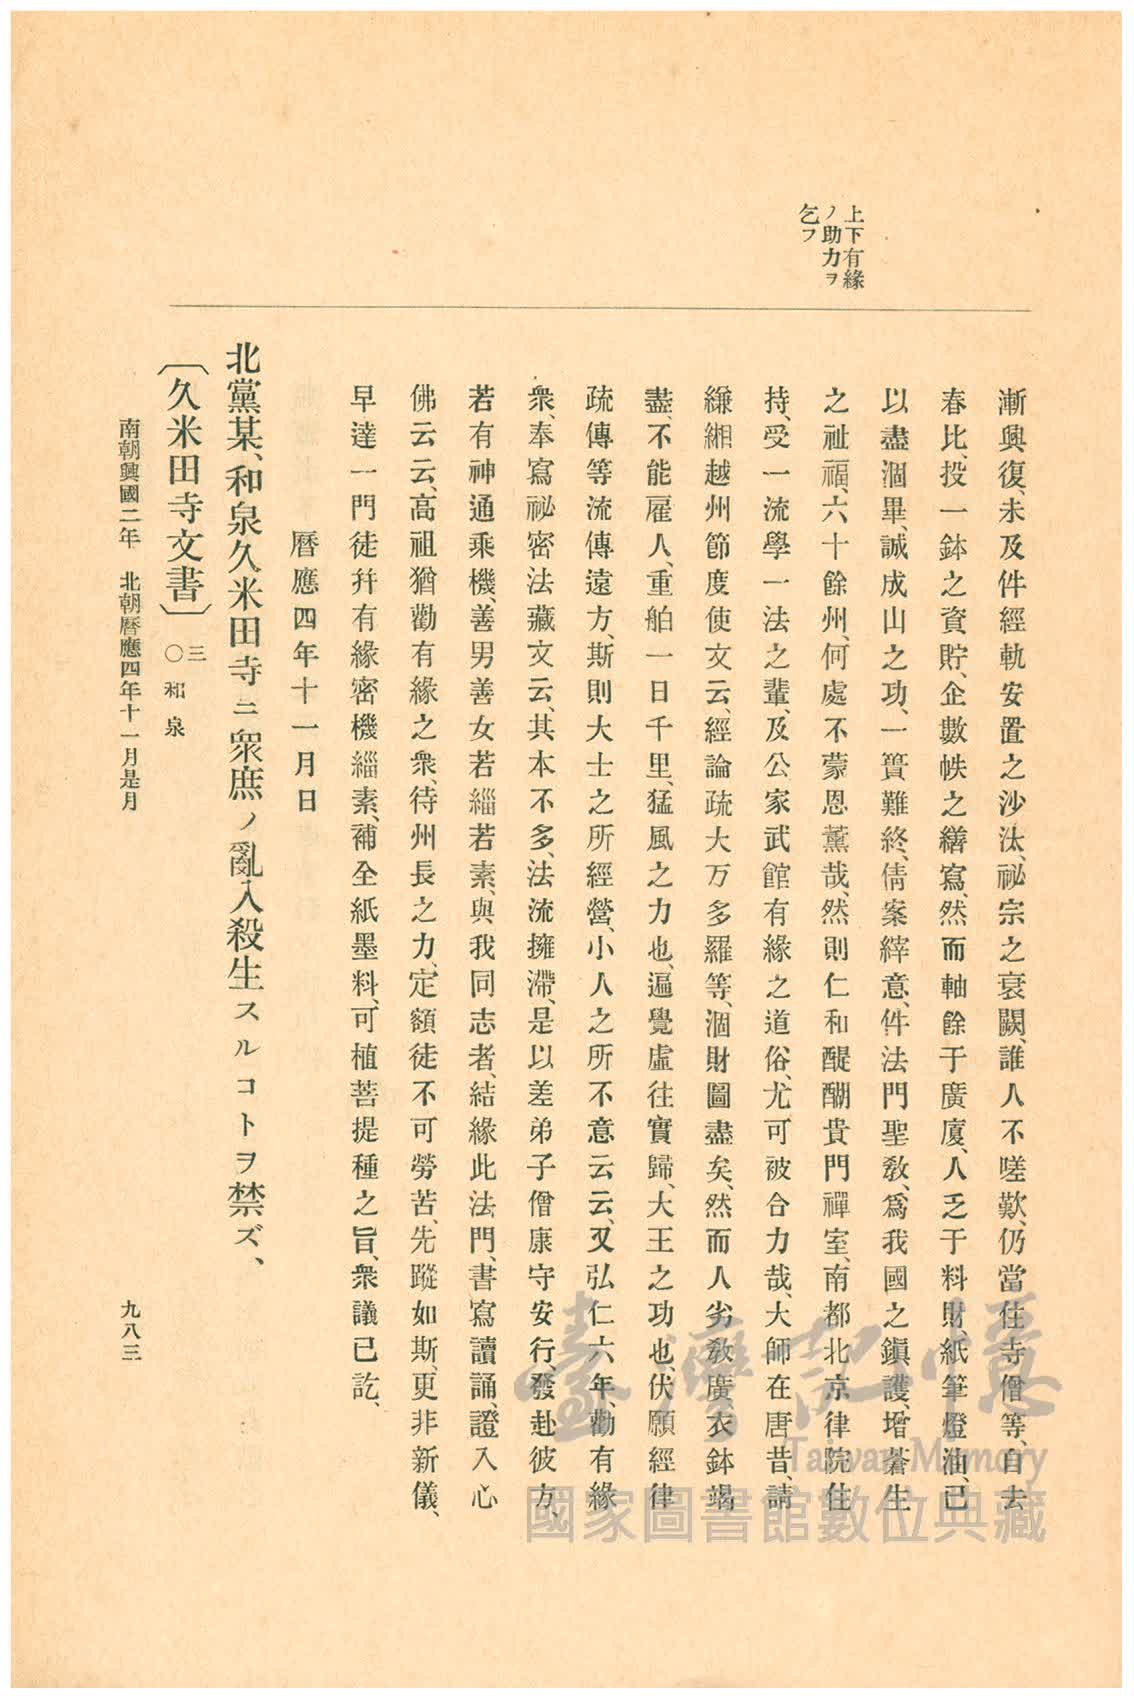 上下有緣
ノ助力ヲ
乞フ
漸興復、未及件經軌安置之沙汰、祕宗之衰闕、誰人不嗟歎、仍當住寺僧等、自去
春比、投一鉢之資貯、企數帙之繕寫、然而軸餘于廣廈、人乏于料財紙筆燈油、已
以盡涸畢、誠成山之功、一簣難終、倩案繂意、件法門聖教、爲我國之鎭護、增蒼生
之祉福、六十餘州、何處不蒙恩薰哉、然則仁和醍醐貴門禪室、南都北京律院住
持、受一流學一法之輩、及公家武館有緣之道俗、尤可被合力哉、大師在唐昔、請
縑緗越州節度使文云、經論疏大万多羅等、涸財圖盡矣、然而人劣教廣、衣鉢竭
盡、不能雇人、重舶一日千里、猛風之力也、遍覺虛往實歸、大王之功也、伏願經律
疏傳等流傳遠方、斯則大士之所經營、小人之所不意云云、又弘仁六年、勸有緣
衆、奉寫祕密法藏文云、其本不多、法流擁滯、是以差弟子僧康守安行、發赴彼方、
若有神通乘機、善男善女若緇若素、與我同志者、結緣此法門、書寫讀誦、證入心
佛云云、高祖猶勸有緣之衆、待州長之力、定額徒不可勞苦、先蹤如斯、更非新儀、
早達一門徒幷有緣密機緇素、補全紙墨料、可植菩提種之旨、衆議已訖、
曆應四年十一月日
北黨某、和泉久米田寺ニ衆庶ノ亂入殺生スルコトヲ禁ズ、
〔久米田寺文書〕三〇和泉
南朝興國二年　北朝曆應四年十一月是月
九八三
臺灣記憶
Taiwan Memory
國家圖書館數位典藏